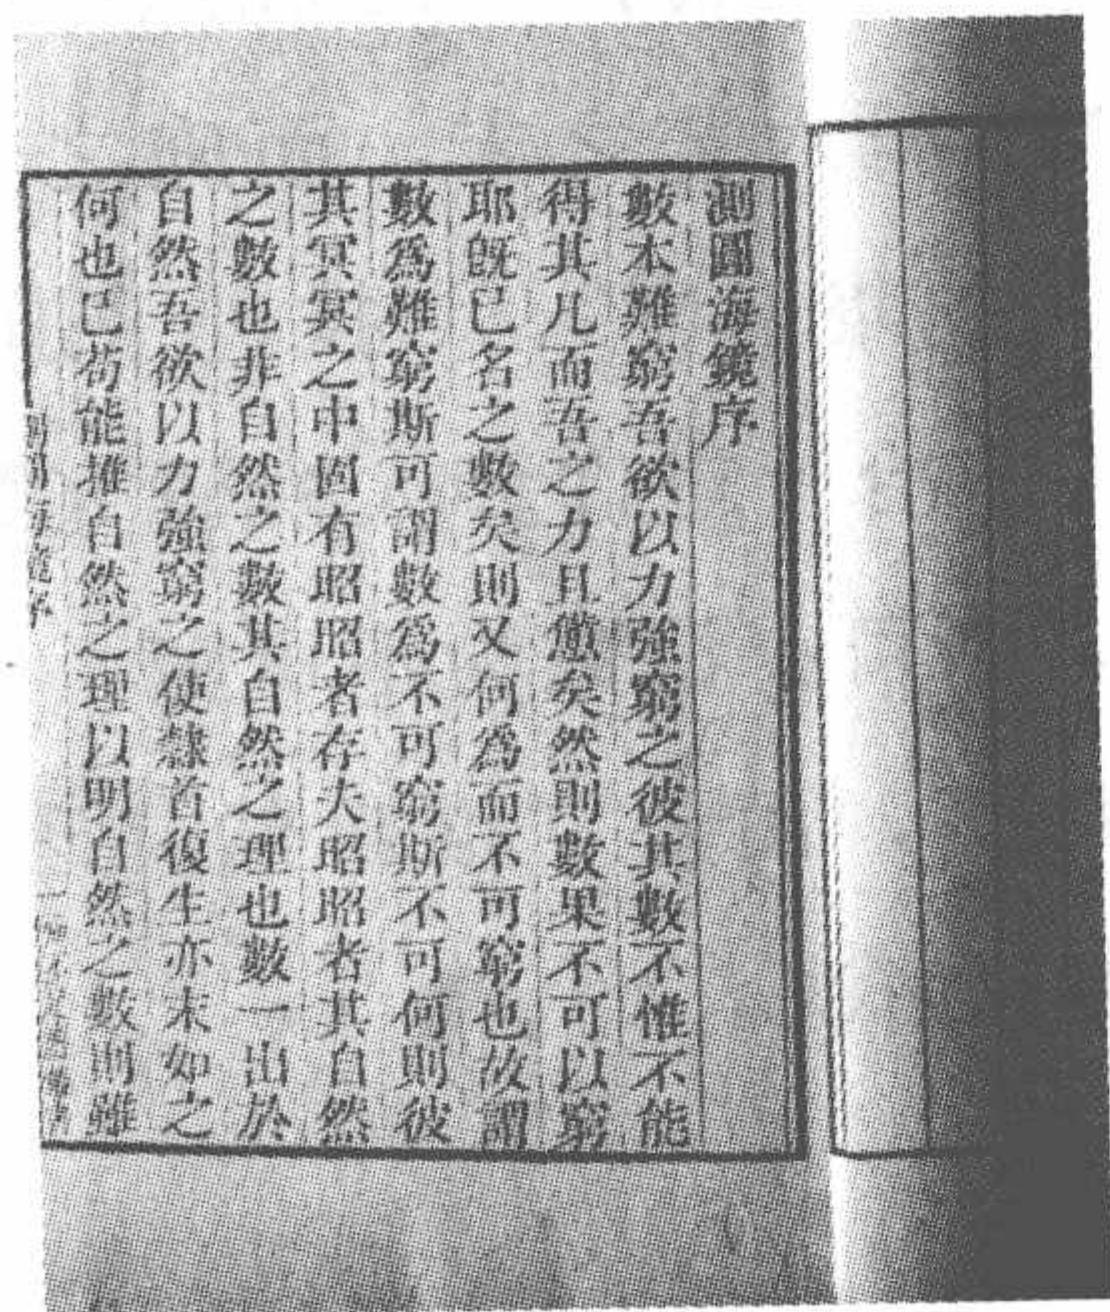 測圓海鏡序
數本難窮吾欲以力強窮之彼其數不惟不能
得其凡而吾之力且憊矣然則數果不可以窮
耶旣已名之數矣則又何爲而不可窮也故謂
數爲難窮斯可謂數爲不可窮斯不可何則彼
其冥冥之中固有昭昭者存夫昭昭者其自然
之數也非自然之數其自然之理也數一出於
自然吾欲以力強窮之使隸首復生亦末如之
何也已苟能推自然之理以明自然之數則雖
測圓海鏡序
一